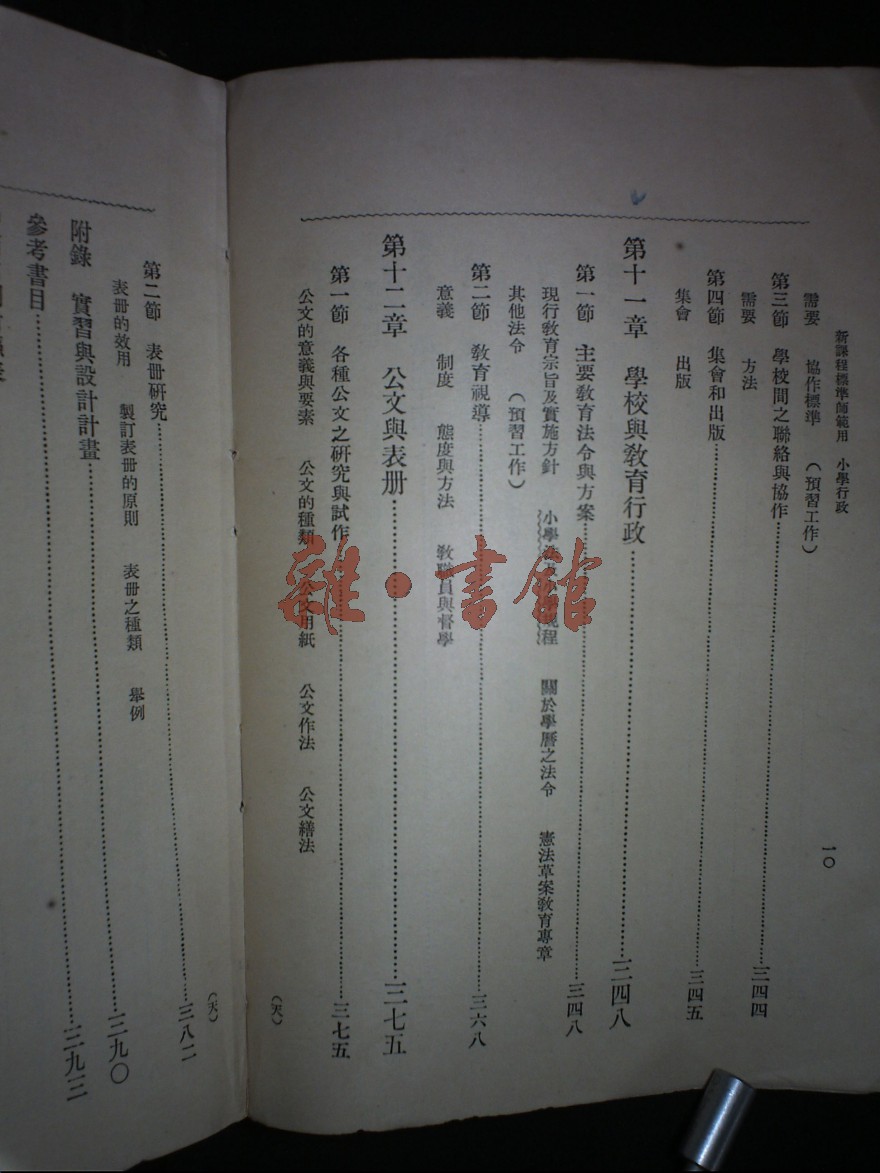 新課程標準師範用 小學行政
一〇
需要 協作標準 （預習工作）
第三節 學校間之聯絡與協作…………三四四
需要 方法
第四節 集會和出版…………三四五
集會 出版
第十一章 學校與教育行政…………三四八
第一節 主要教育法令與方案…………三四八
現行教育宗旨及實施方針 小學 規程 關於學曆之法令 憲法草案教育專章
其他法令 （預習工作）
第二節 教育視導…………三六八
意義 制度 態度與方法 教職員與督學
第十二章 公文與表册…………三七五
第一節 各種公文之研究與試作…………三七五
公文的意義與要素 公文的種類 公文用紙 公文作法 公文繕法
（天）
第二節 表冊研究…………三八二
表冊的效用 製訂表冊的原則 表冊之種類 舉例
（天）
附錄 實習與設計計畫…………三九〇
參考書目…………三九三
雜·書館